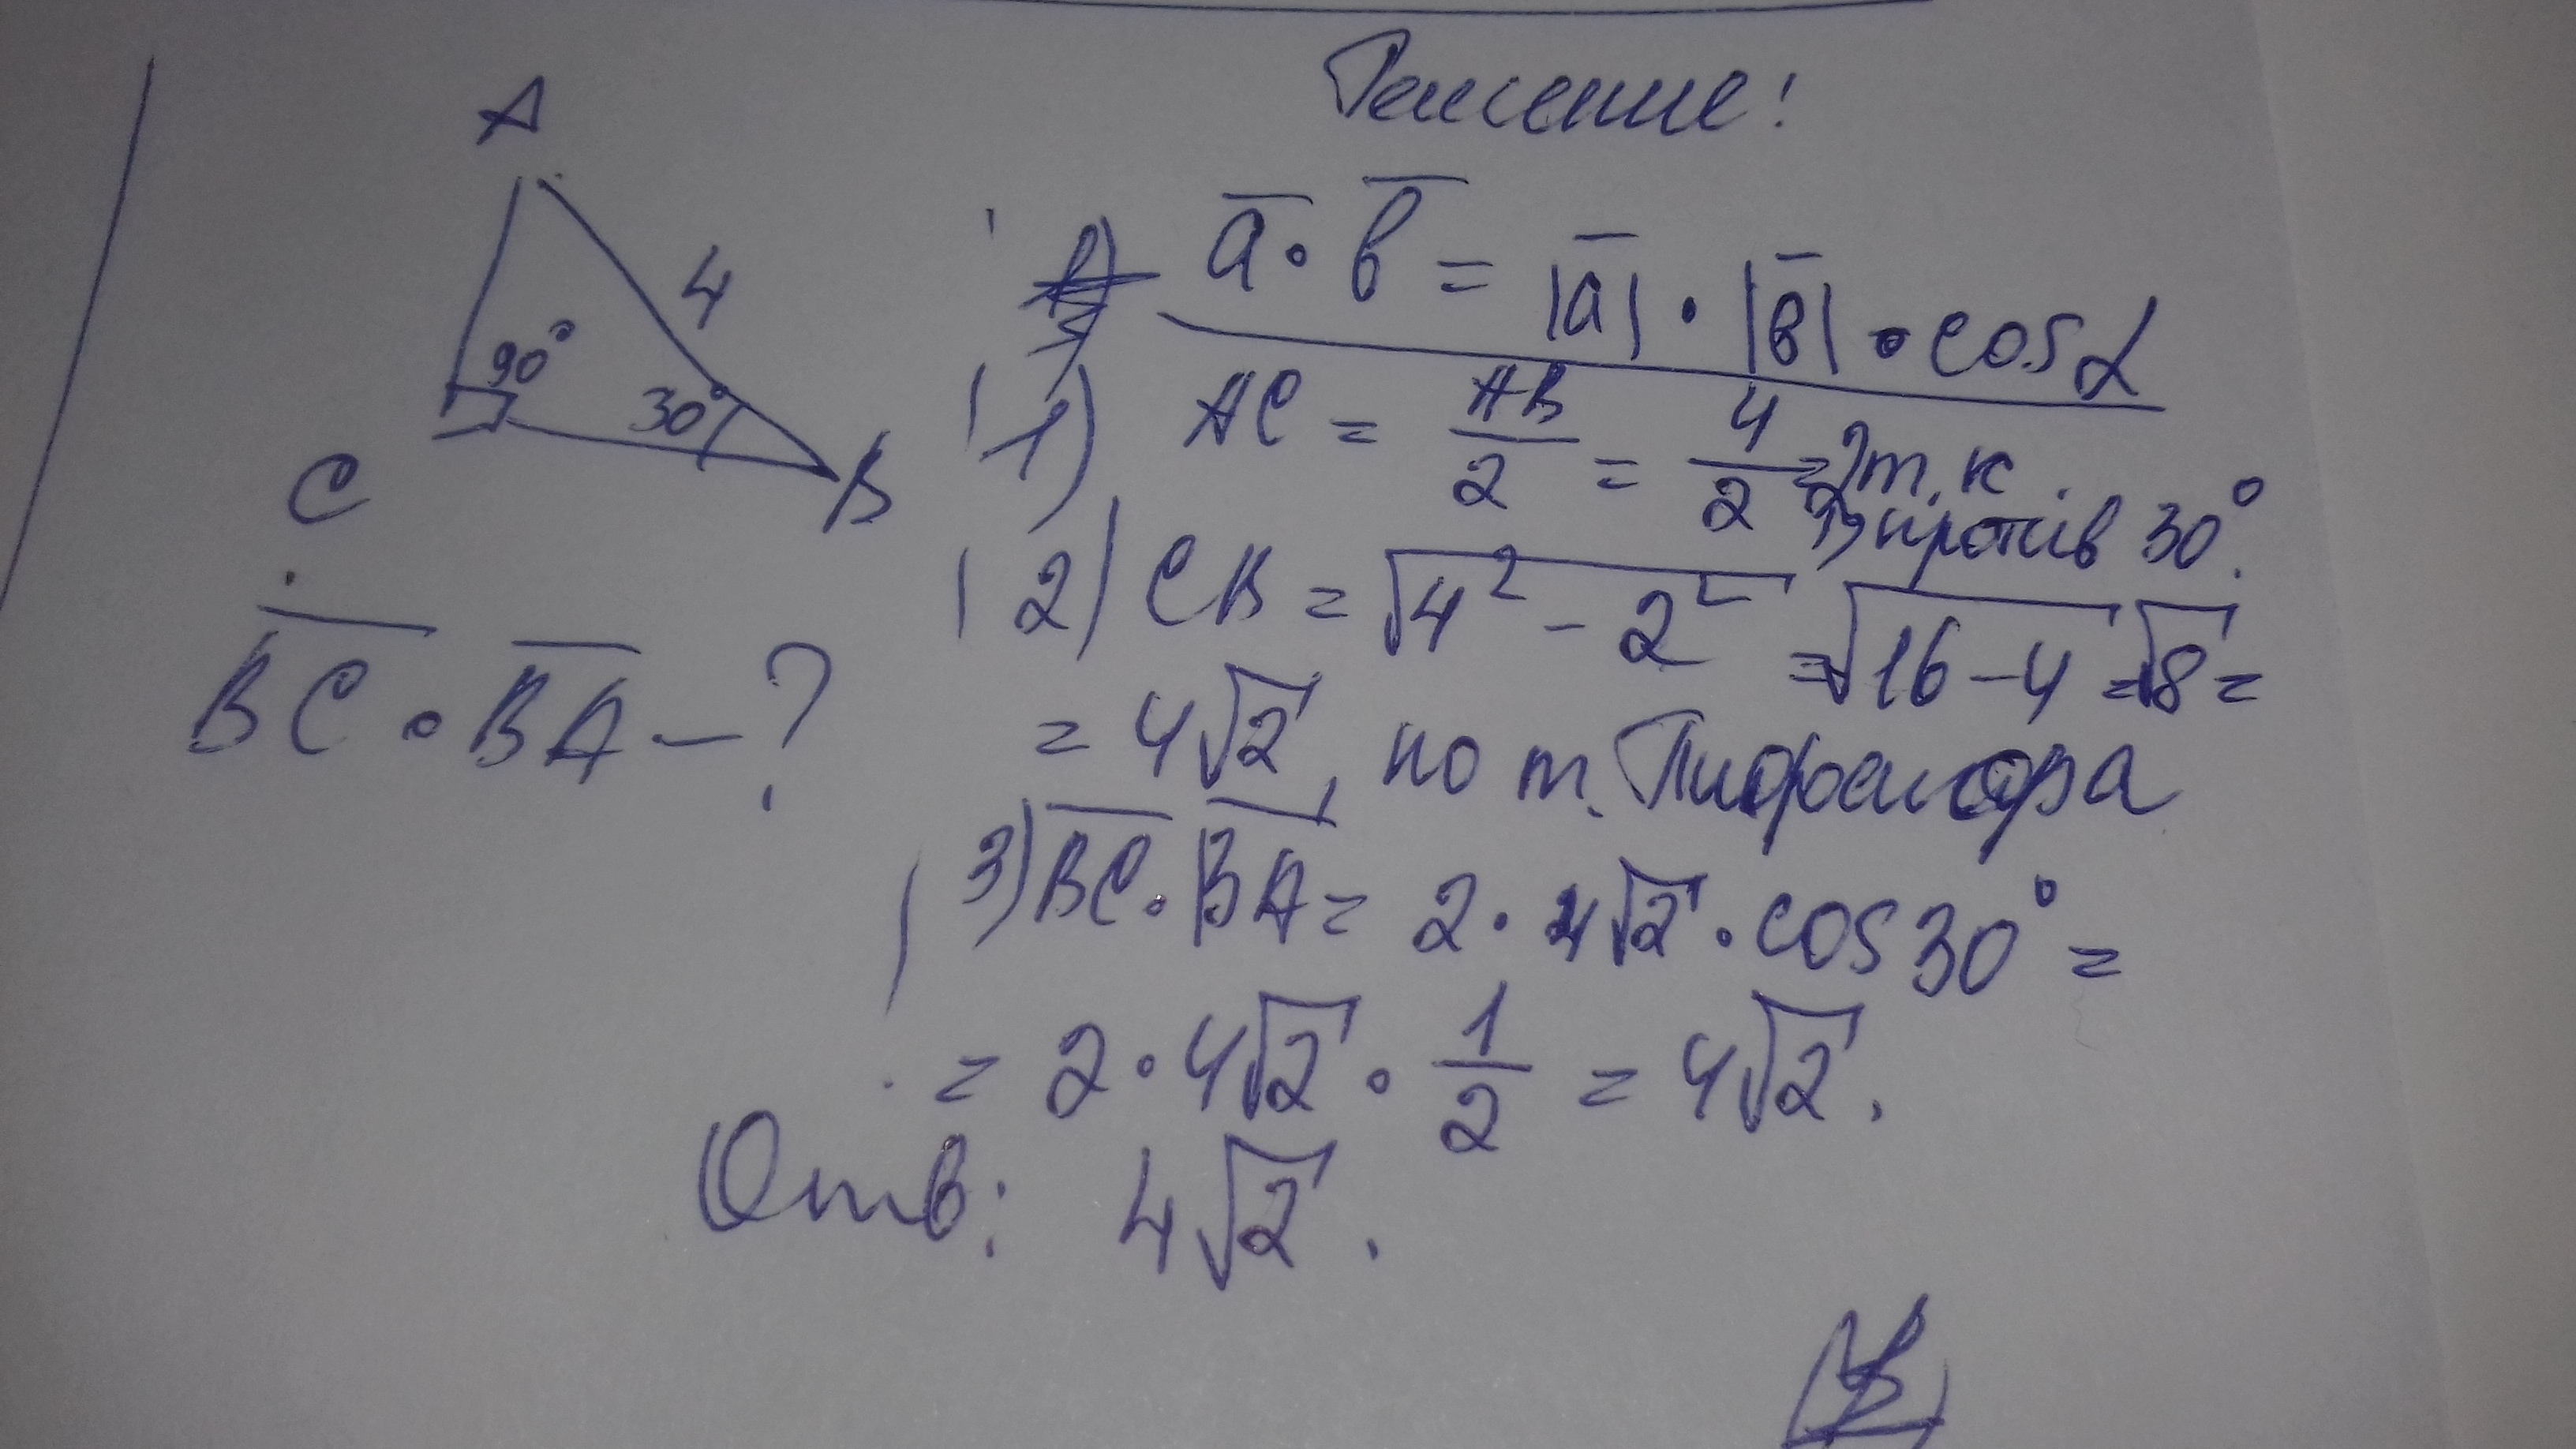 A
4
90°
30°
C
B
BC · BA — ?
Решение:
a · b = |a| · |b| · cos α
1) AC = AB/2 = 4/2 = 2 т.к.
против 30°.
2) CB = √4² − 2² = √16 − 4 = √8 =
= 4√2, по т. Пифагора
3) BC · BA = 2 · 4√2 · cos 30° =
= 2 · 4√2 · 1/2 = 4√2.
Отв: 4√2.